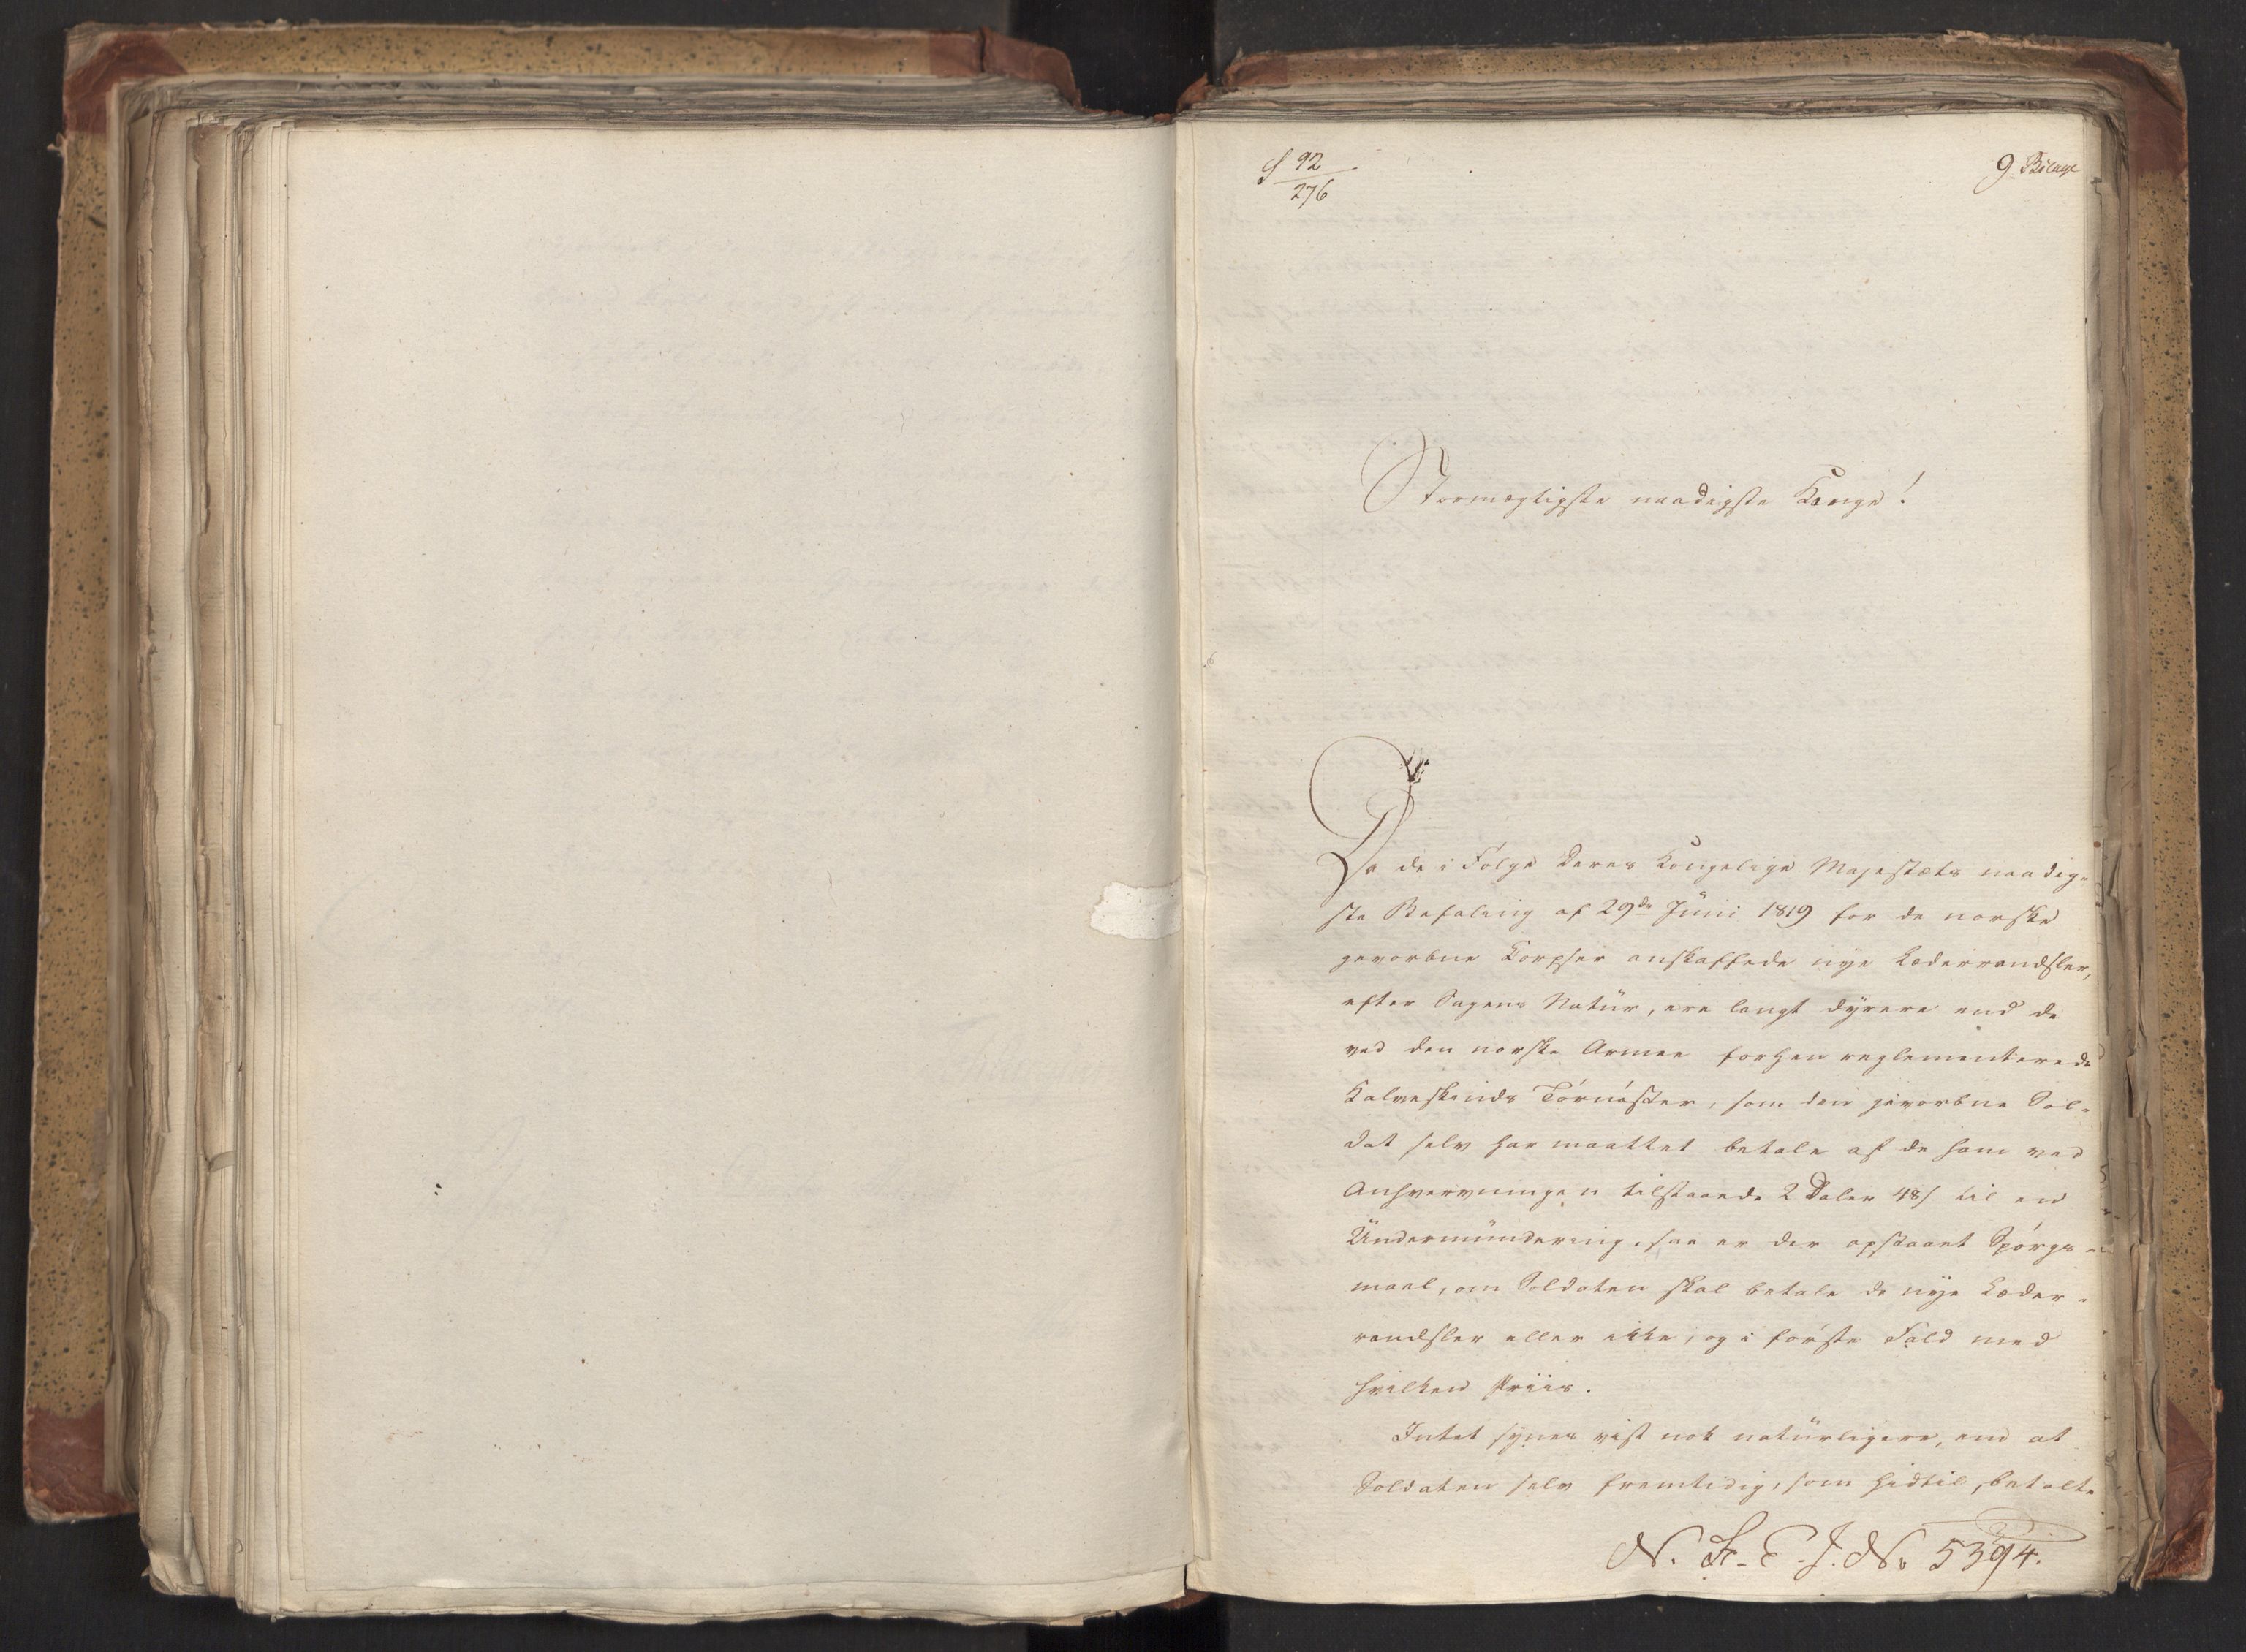 S 92
276
9 Bilage
Stormægtigste naadigste Konge!
Da de i Følge Deres Kongelige Majestæts naadig-
ste Befaling af 29de Juni 1819 for de norske
gevorbne Korpser anskaffede nye Læderrandsler,
efter Sagens Natur, ere langt dyrere end de
ved den norske Armee forhen reglementerede
Kalveskinds Tornøster, som den gevorbne Sol-
dat selv har maattet betale af de ham ved
Anhvervningen tilstaaede 2 Daler 48 s til en
Undermundering, saa er der opstaaet Spørgs-
maal, om Soldaten skal betale de nye Læder-
randsler eller ikke, og i første Fald med
hvilken Priis.
Intet synes vist nok naturligere, end at
Soldaten selv fremtidig, som hidtil, betalte
N. St. E. J. No 5394.